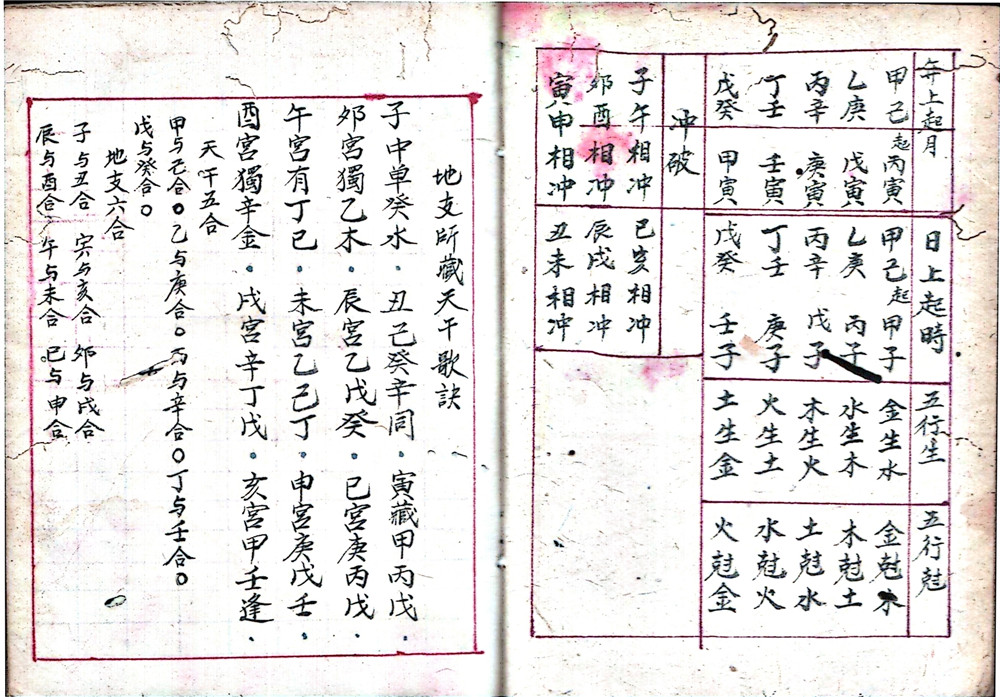 年上起月
甲己起丙寅
乙庚 戊寅
丙辛 庚寅
丁壬 壬寅
戊癸 甲寅
日上起時
甲己起甲子
乙庚 丙子
丙辛 戊子
丁壬 庚子
戊癸 壬子
五行生
金生水
水生木
木生火
火生土
土生金
五行尅
金尅木
木尅土
土尅水
水尅火
火尅金
冲破
子午相冲
卯酉相冲
寅申相冲
巳亥相冲
辰戌相冲
丑未相冲
地支所藏天干歌訣
子中单癸水．丑己癸辛同．寅藏甲丙戊．
卯宮獨乙木．辰宮乙戊癸．巳宮庚丙戊．
午宮有丁己．未宮乙己丁．申宮庚戊壬．
酉宮獨辛金．戌宮辛丁戊．亥宮甲壬逢．
天干五合
甲与己合。乙与庚合。丙与辛合。丁与壬合。
戊与癸合。
地支六合
子与丑合 寅与亥合 卯与戌合
辰与酉合 午与未合 巳与申合